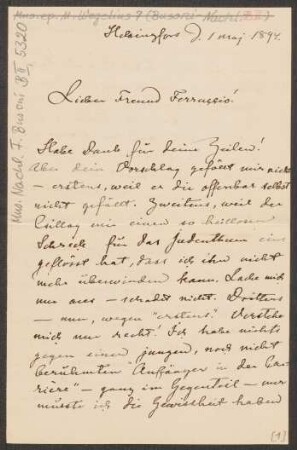 Mus. ep. M. Wegelius 7 (Busoni-Nachl. B II)
Mus. Nachl. F. Busoni B II, 5320
Helsingfors d. 1 maj 1894.
Lieber Freund Ferruccio!
Habe Dank für deine Zeilen!
Aber dein Vorschlag gefällt mir nicht
– erstens, weil er dir offenbar selbst
nicht gefällt. Zweitens, weil der
Csillag mir einen so heillosen
Schreck für das Judenthum ein-
geflösst hat, dass ich ihn nicht
mehr überwinden kann. Lache mich
nur aus – schadet nicht. Drittens
– nun, wegen "erstens". Verstehe
mich nur recht! Ich habe nichts
gegen einen jungen, noch nicht
berühmten Anfänger in der Car-
rière – ganz im Gegenteil – nur
müsste ich die Gewissheit haben
[1]